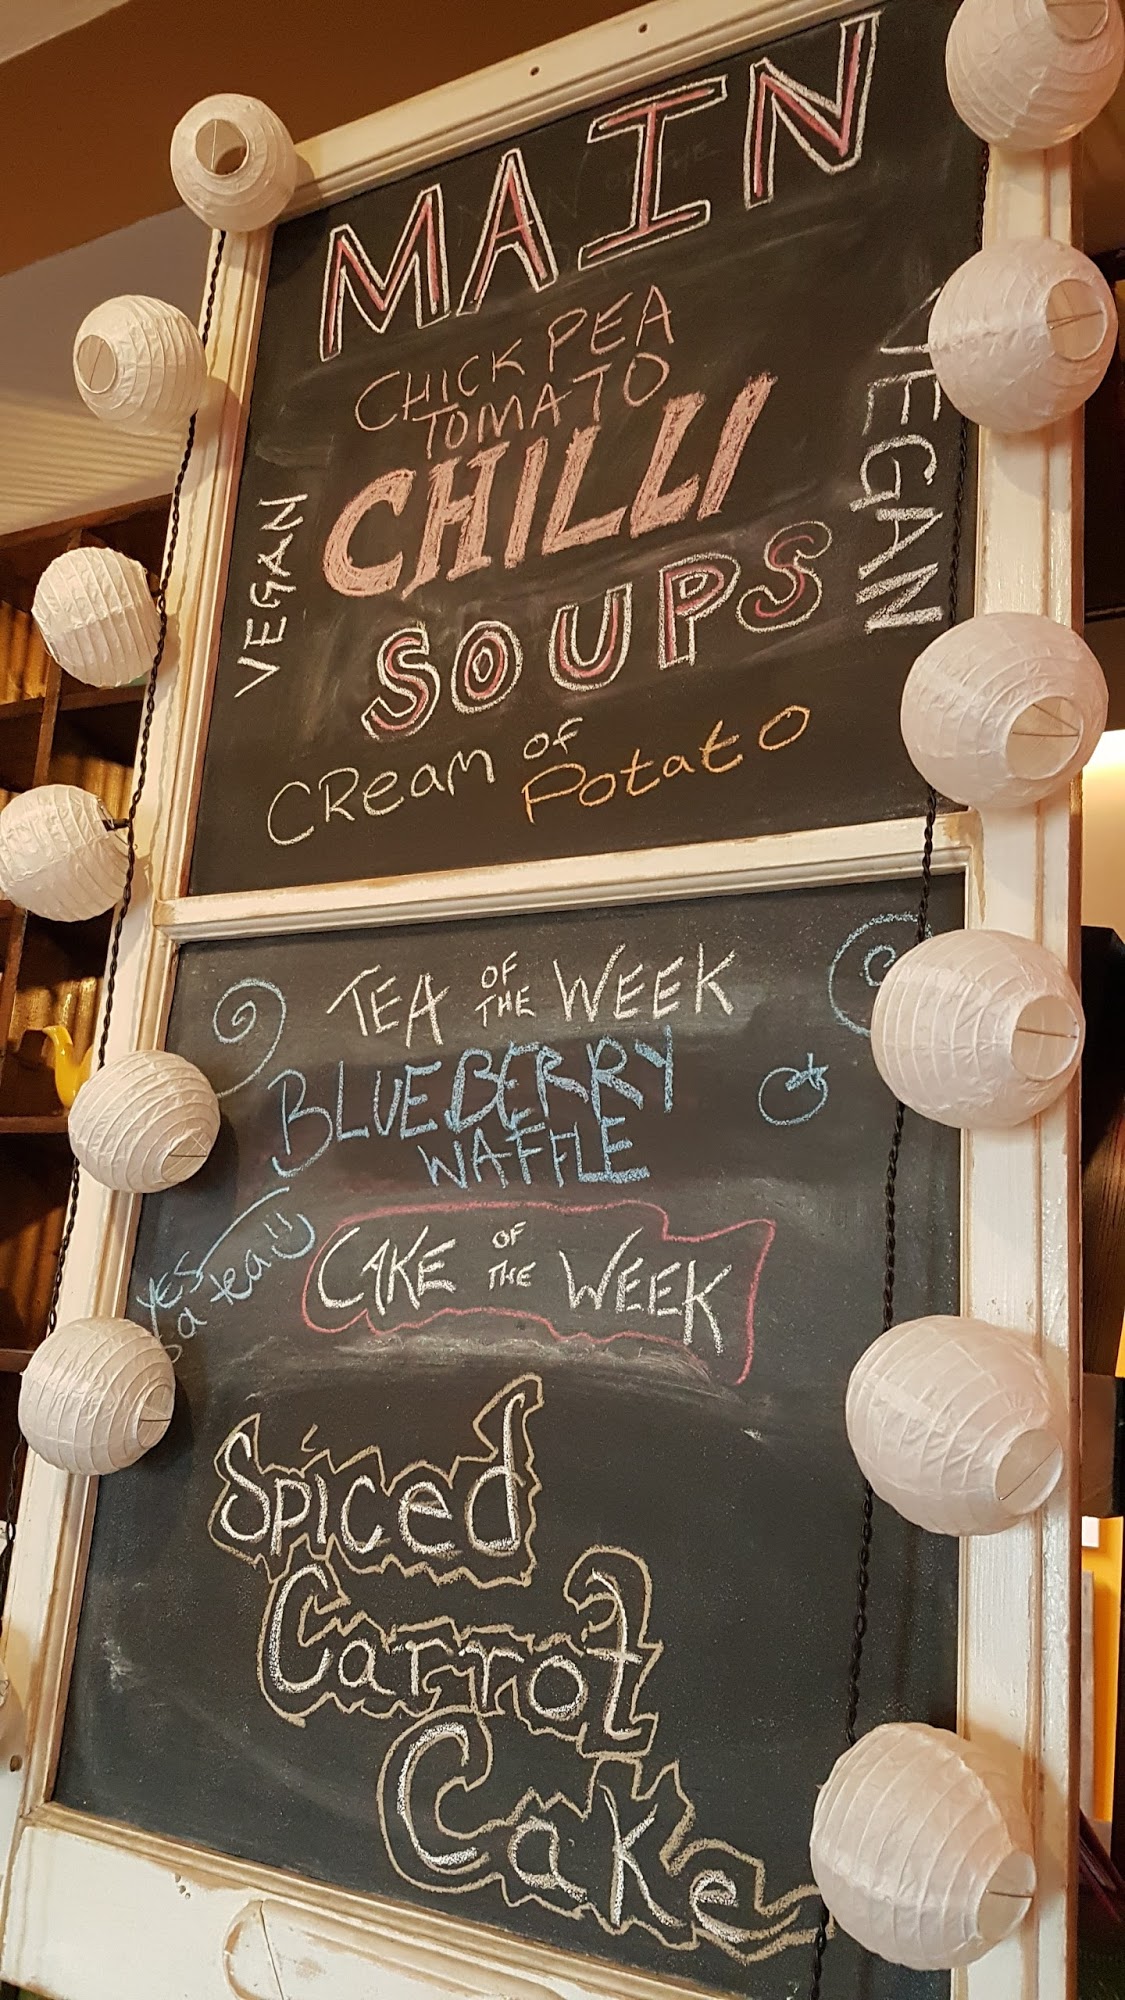 MAIN
CHICK PEA
TOMATO
CHILLI
VEGAN
VEGAN
SOUPS
CReam of
Potato
TEA OF THE WEEK
BLUEBERRY
WAFFLE
YES
a tea
CAKE OF THE WEEK
Spiced
Carrot
Cake